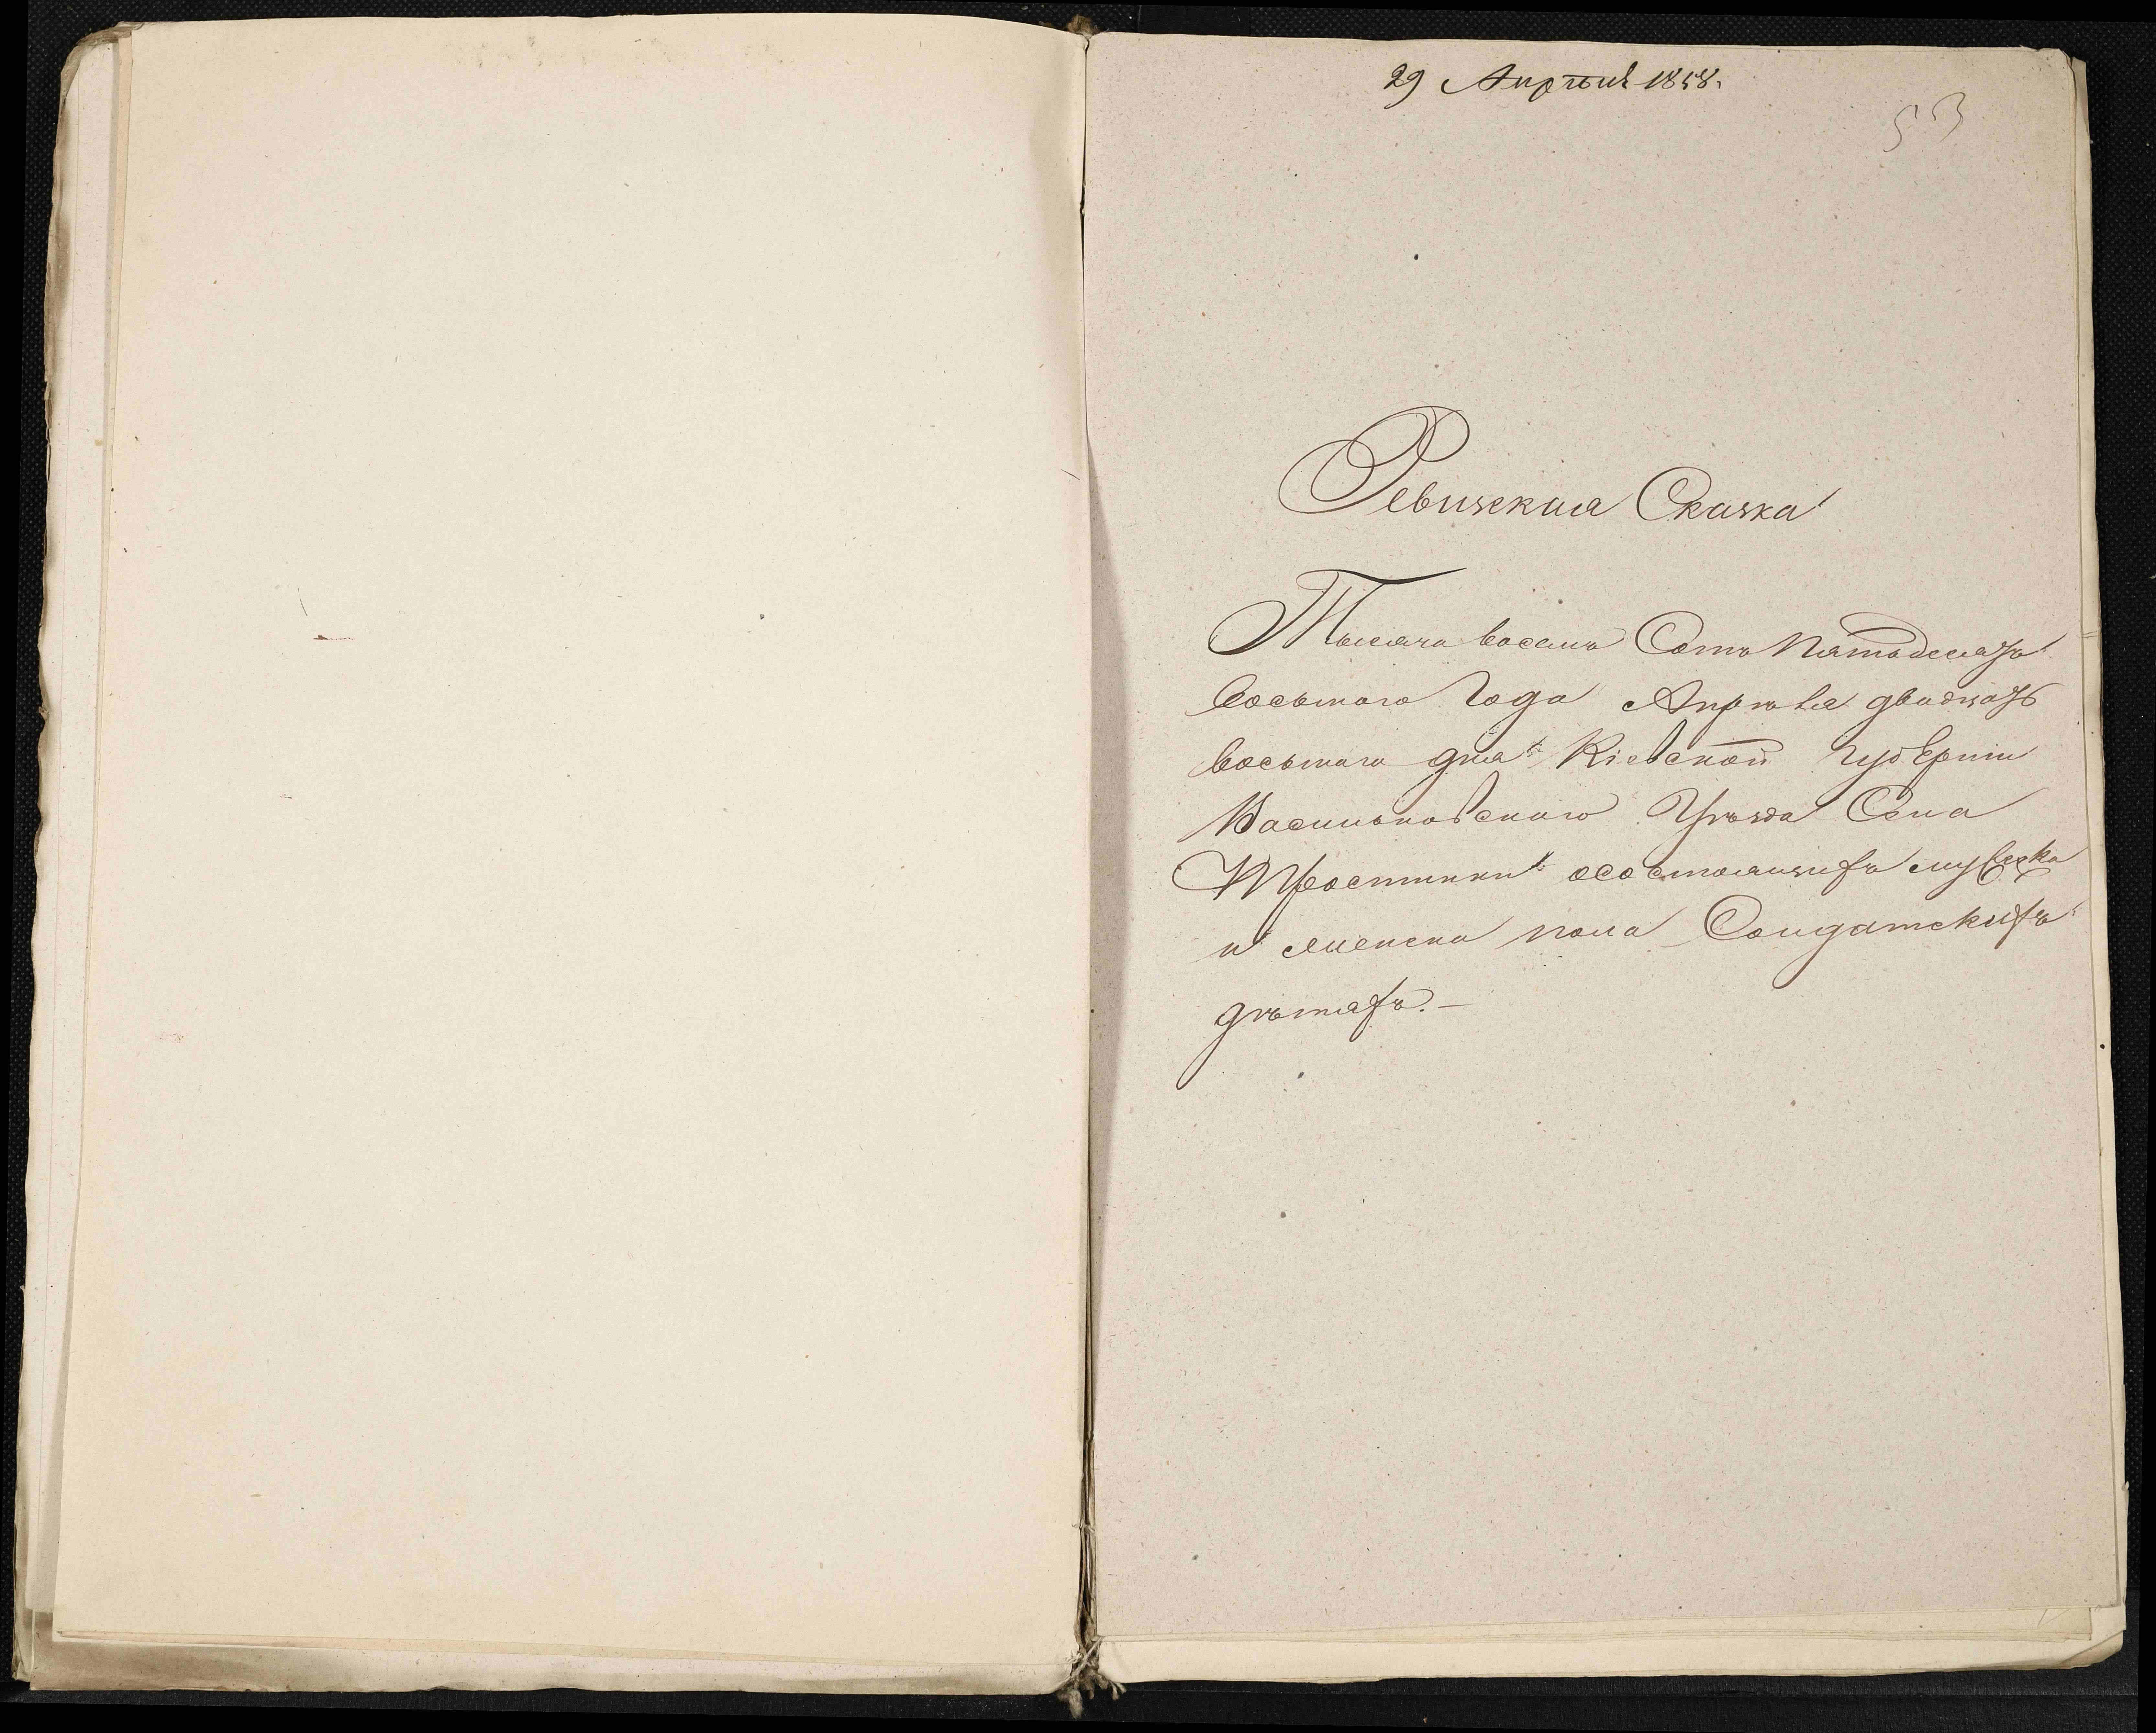 29 Апрѣля 1858.
53
Ревизкая Сказка
Тысяча восемь Сотъ Пятьдесятъ
восьмаго Года Апрѣля двадцать
восьмаго дня Кіевской Губерніи
Васильковскаго Уѣзда Села
осостоящихъ мужеска
и женска пола Солдатскихъ
дѣтяхъ. —